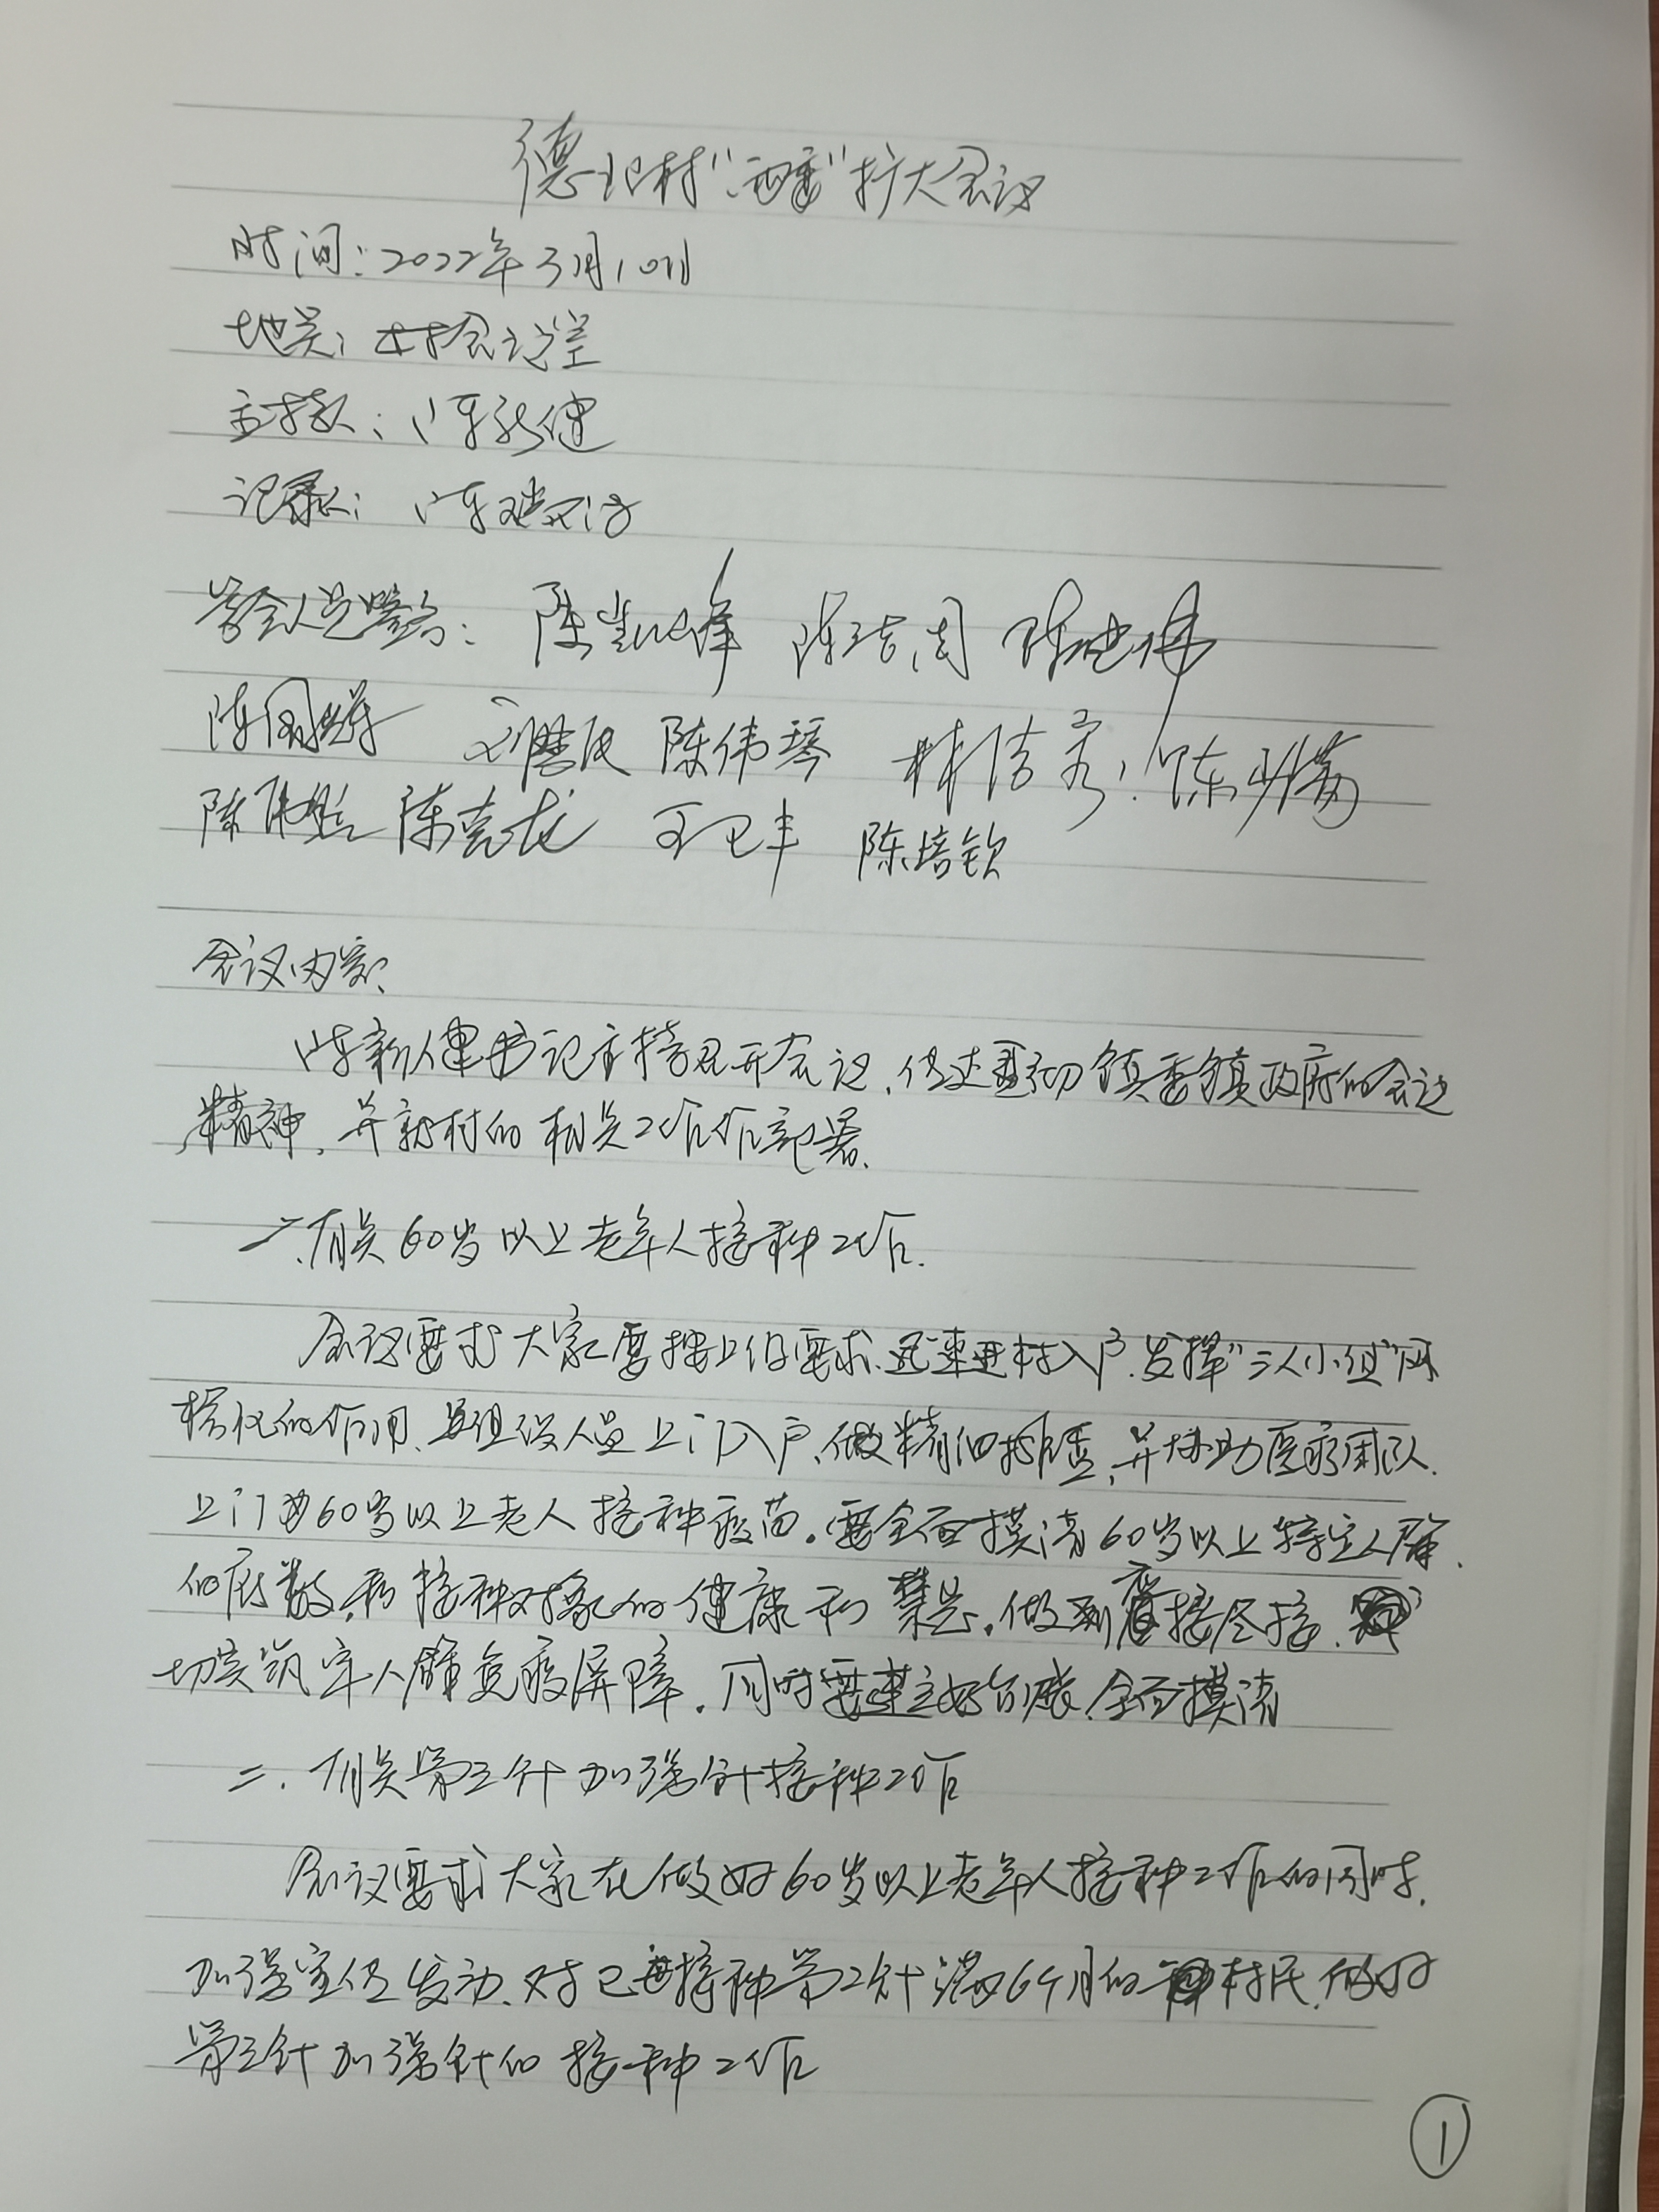 德北村“两委”扩大会议
时间：2022年3月10日
地点：村会议室
主持人：陈新健
记录人：陈
参会人员签名：陈凯峰 陈洁周 陈
陈国辉 刘慧良 陈伟琴 林洁 陈
陈伟 陈克龙 王卫丰 陈培钦
会议内容：
陈新健书记主持召开会议，传达镇委镇政府的会议
精神，并就村的相关工作作部署。
一、有关60岁以上老年人接种工作.
会议要求大家要按上级要求，迅速进村入户，发挥“三人小组”网
格化的作用，组织人员上门入户，做精细排查，并协助医疗团队
上门为60岁以上老人接种疫苗。要全面摸清60岁以上特定人群
的底数，和接种对象的健康和禁忌。做到应接尽接，
切实筑牢人群免疫屏障，同时要建立好台账，全面摸清
二、有关第三针加强针接种工作
会议要求大家在做好60岁以上老年人接种工作的同时，
加强宣传发动，对已接种第二针满6个月的村民，做好
第三针加强针的接种工作
1